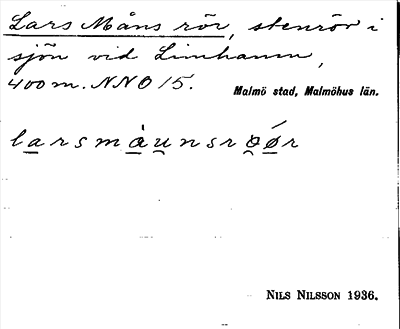 Lars Måns rör, stenrör i
sjön vid Limhamn,
400 m. NNO 15.
Malmö stad, Malmöhus län.
larsmȧu̯nsro̯ǿr
NILS NILSSON 1936.